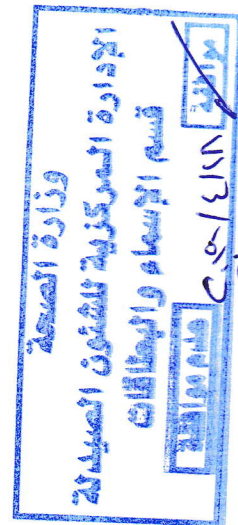 وزارة الصحة
الإدارة المركزية للشئون الصيدلية
قسم الإسماء والبطاقات
عدم موافقة موافقة